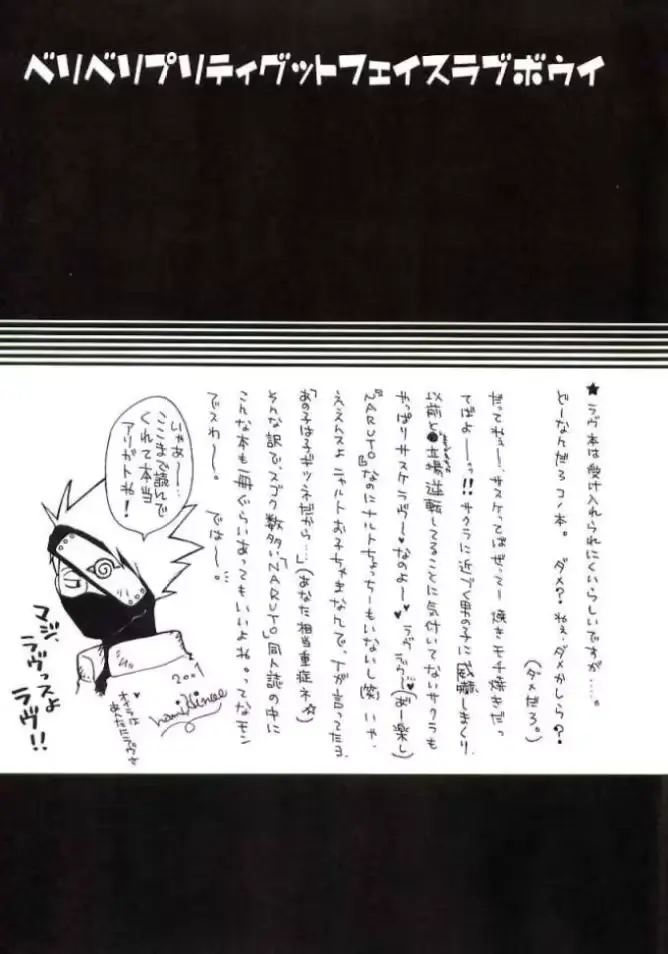 ベリベリプリティグットフェイスラブボウイ
★ラヴ本は受け入れられにくいらしいですが……。
どーなんだろコノ本。 ダメ?ねぇ、ダメかしら?
(ダメだろ。)
だってねぇー、サスケってばぜってー焼きモチ焼きだっ
てばよーっ!!サクラに近づく男の子に威嚇しまくり、
以前と立場逆転してることに気付いてないサクラも
やっぱりサスケラヴ〜なのよ〜♥ ラヴラヴ〜♥(あー楽し)
『NARUTO』なのにナルトちょっちーもいないし(笑)いや、
ええんスよニャルトお子ちゃまなんで、Tが言ってたヨ
「あの子は子ギツネだから…」(あなた相当重症ネ☆)
そんな訳で、スゴク数多い「NARUTO」同人誌の中に
こんな本も一冊ぐらいあってもいいよね。ってなモン
でスわ〜〜。 では〜。
いやあ〜…
ここまで読んで
くれて本当
アリガトね!
マジ、
ラヴっスよ
ラヴ!!
200
オイラは
あんたにラヴさ